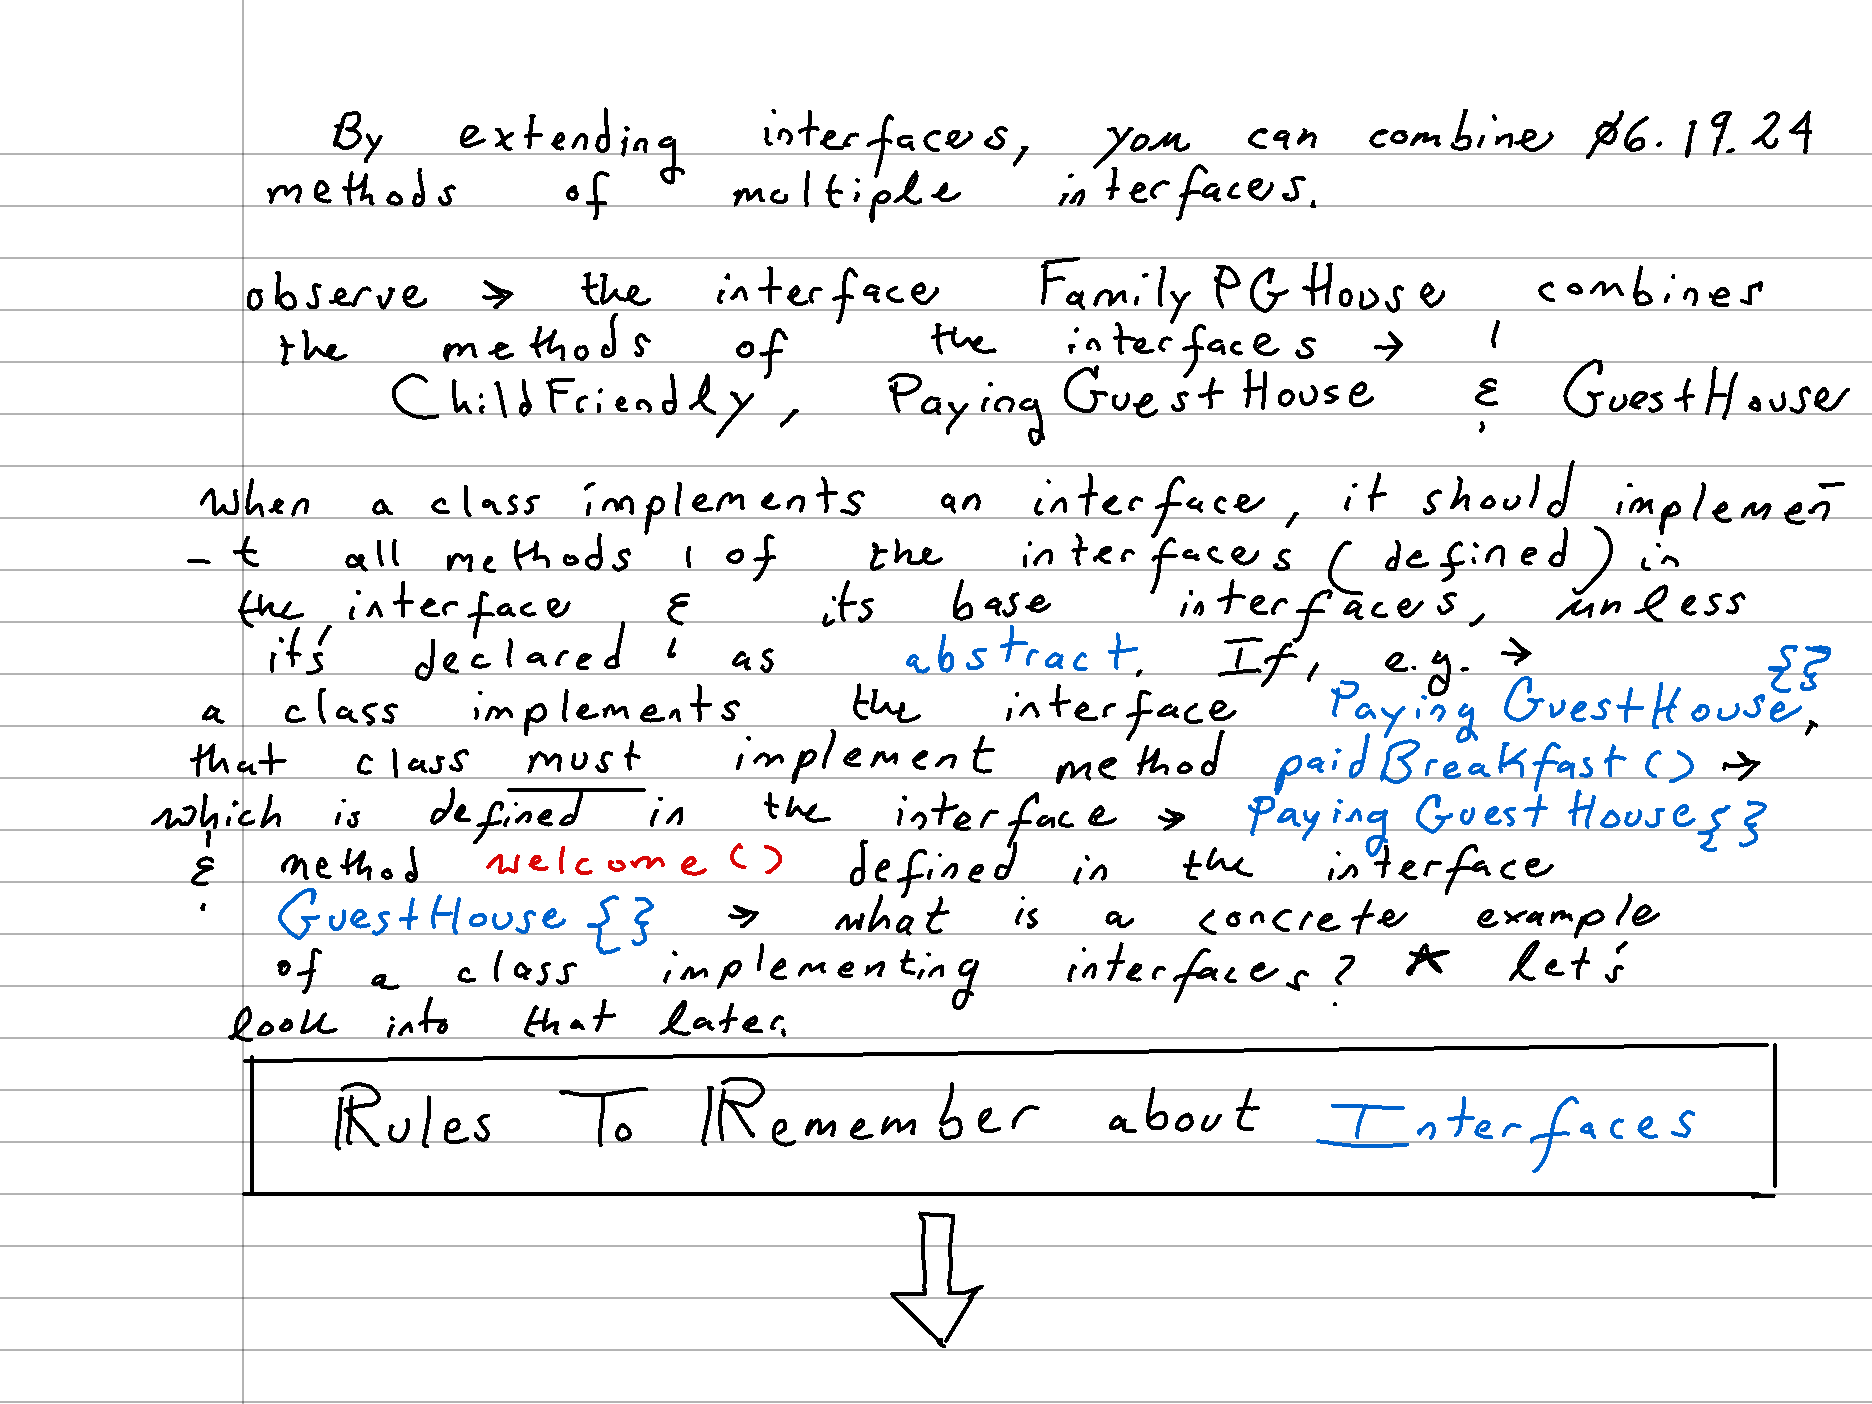 By extending interfaces, you can combine 06.19.24
methods of multiple interfaces.
observe → the interface FamilyPGHouse combines
the methods of the interfaces →
ChildFriendly, PayingGuestHouse & GuestHouse
when a class implements an interface, it should implemen
-t all methods of the interfaces (defined) in
the interface & its base interfaces, unless
it's declared as abstract. If, e.g. →
a class implements the interface PayingGuestHouse{},
that class must implement method paidBreakfast() →
which is defined in the interface → PayingGuestHouse{}
& method welcome() defined in the interface
GuestHouse{} → what is a concrete example
of a class implementing interfaces? ★ let's
look into that later.
Rules To Remember about Interfaces